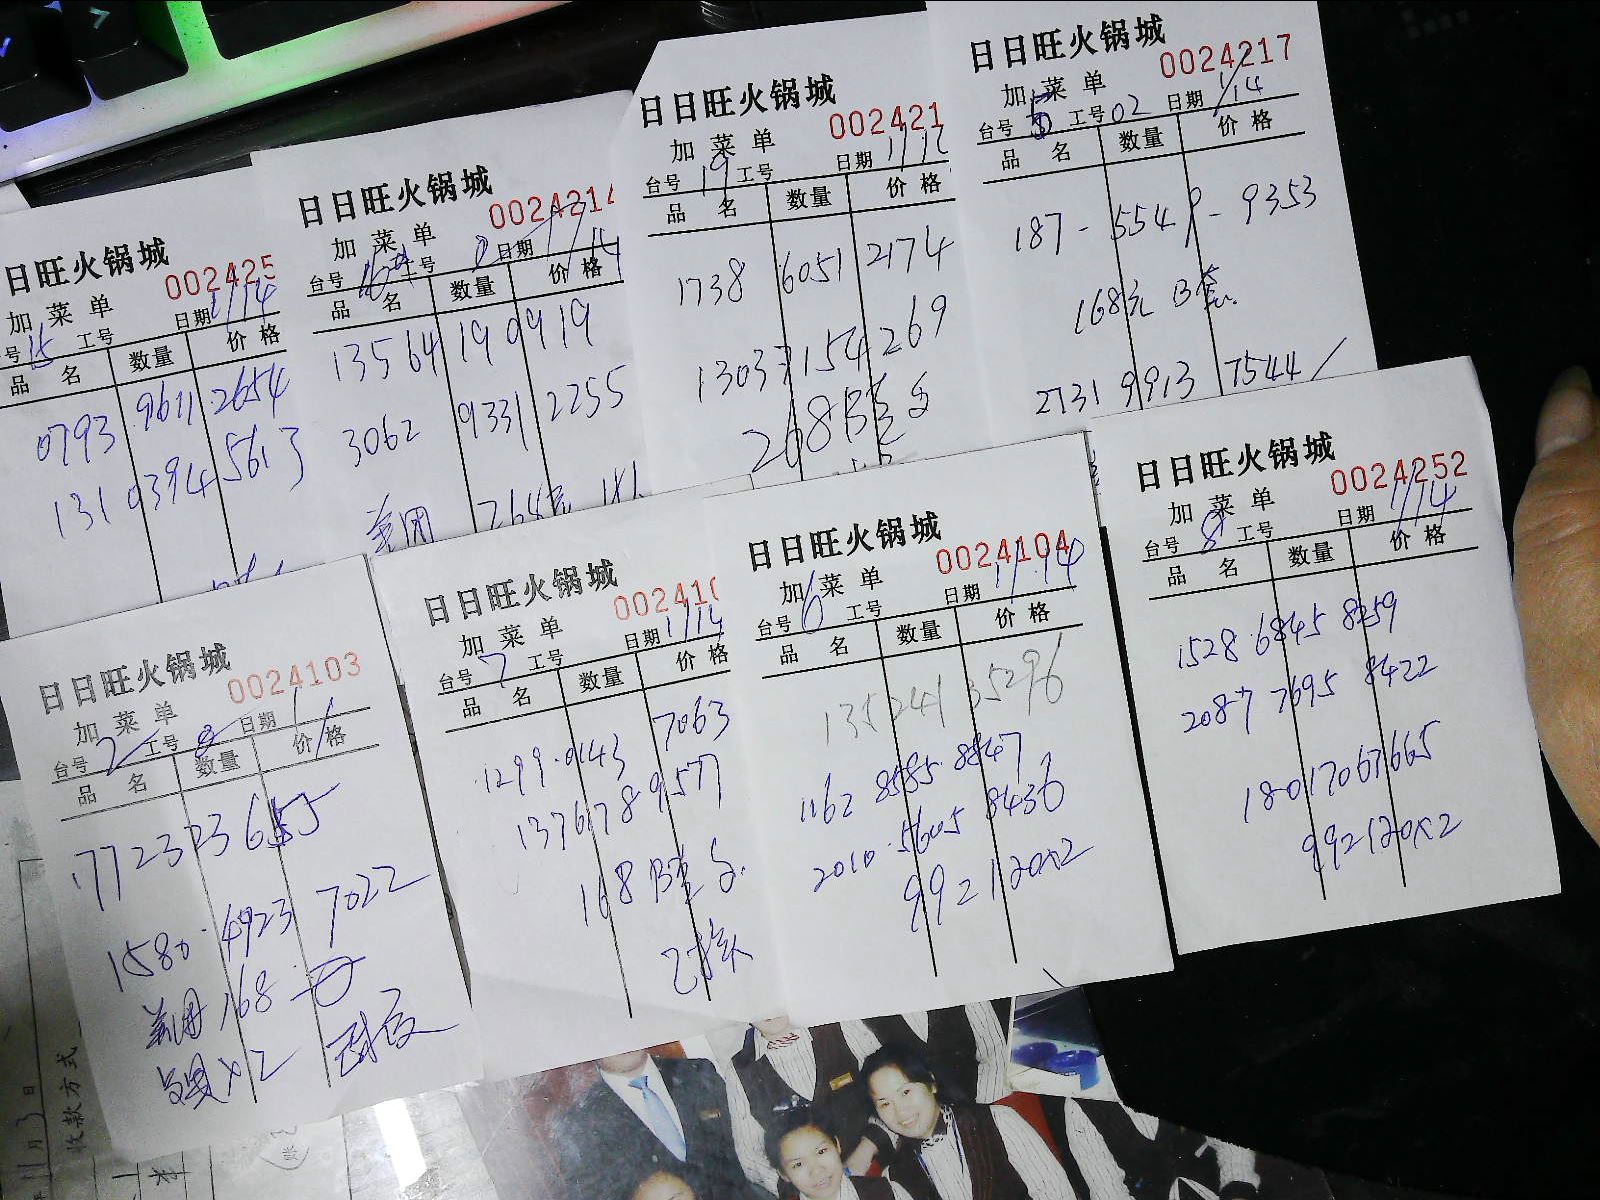 日日旺火锅城
0024217
加菜单
台号 5 工号 02 日期 1/14
品名 数量 价格
187-5549-9353
168元 B套
2731 9913 7544
日日旺火锅城
002421
加菜单
台号 19 工号 日期
品名 数量 价格
1738 6051 2174
13037154269
268B套
日日旺火锅城
002421
加菜单
台号 工号 日期
品名 数量 价格
13564190919
3062 9331 2255
美团 268
日旺火锅城
002425
加菜单
号 15 工号 日期 1/14
品名 数量 价格
0793 9611 2654
13103945613
日日旺火锅城
0024252
加菜单
台号 8 工号 日期 1/14
品名 数量 价格
1528 6845 8259
2087 7695 8422
18017067665
992120X2
日日旺火锅城
0024104
加菜单
台号 6 工号 日期 1/14
品名 数量 价格
13524135296
1162 8585 8847
2010 5605 8436
992120X2
日日旺火锅城
002410
加菜单
台号 7 工号 日期
品名 数量 价格
7063
1299 0143
13761789577
168 B套
日日旺火锅城
0024103
加菜单
台号 2 工号 日期
品名 数量 价格
177232365
1580 4923 7022
美团 168
X2
月3日
收款方式